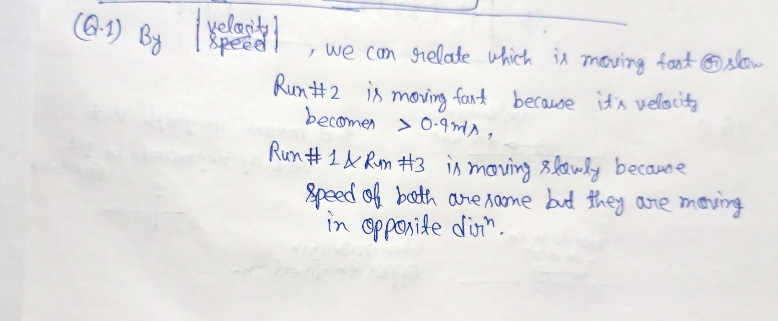 (Q.1) By |velocity|
speed
, we can relate which is moving fast or slow
Run #2 is moving fast because it's velocity
becomes > 0.9 m/s,
Run # 1 & Run #3 is moving slowly because
speed of both are same but they are moving
in opposite dirⁿ.